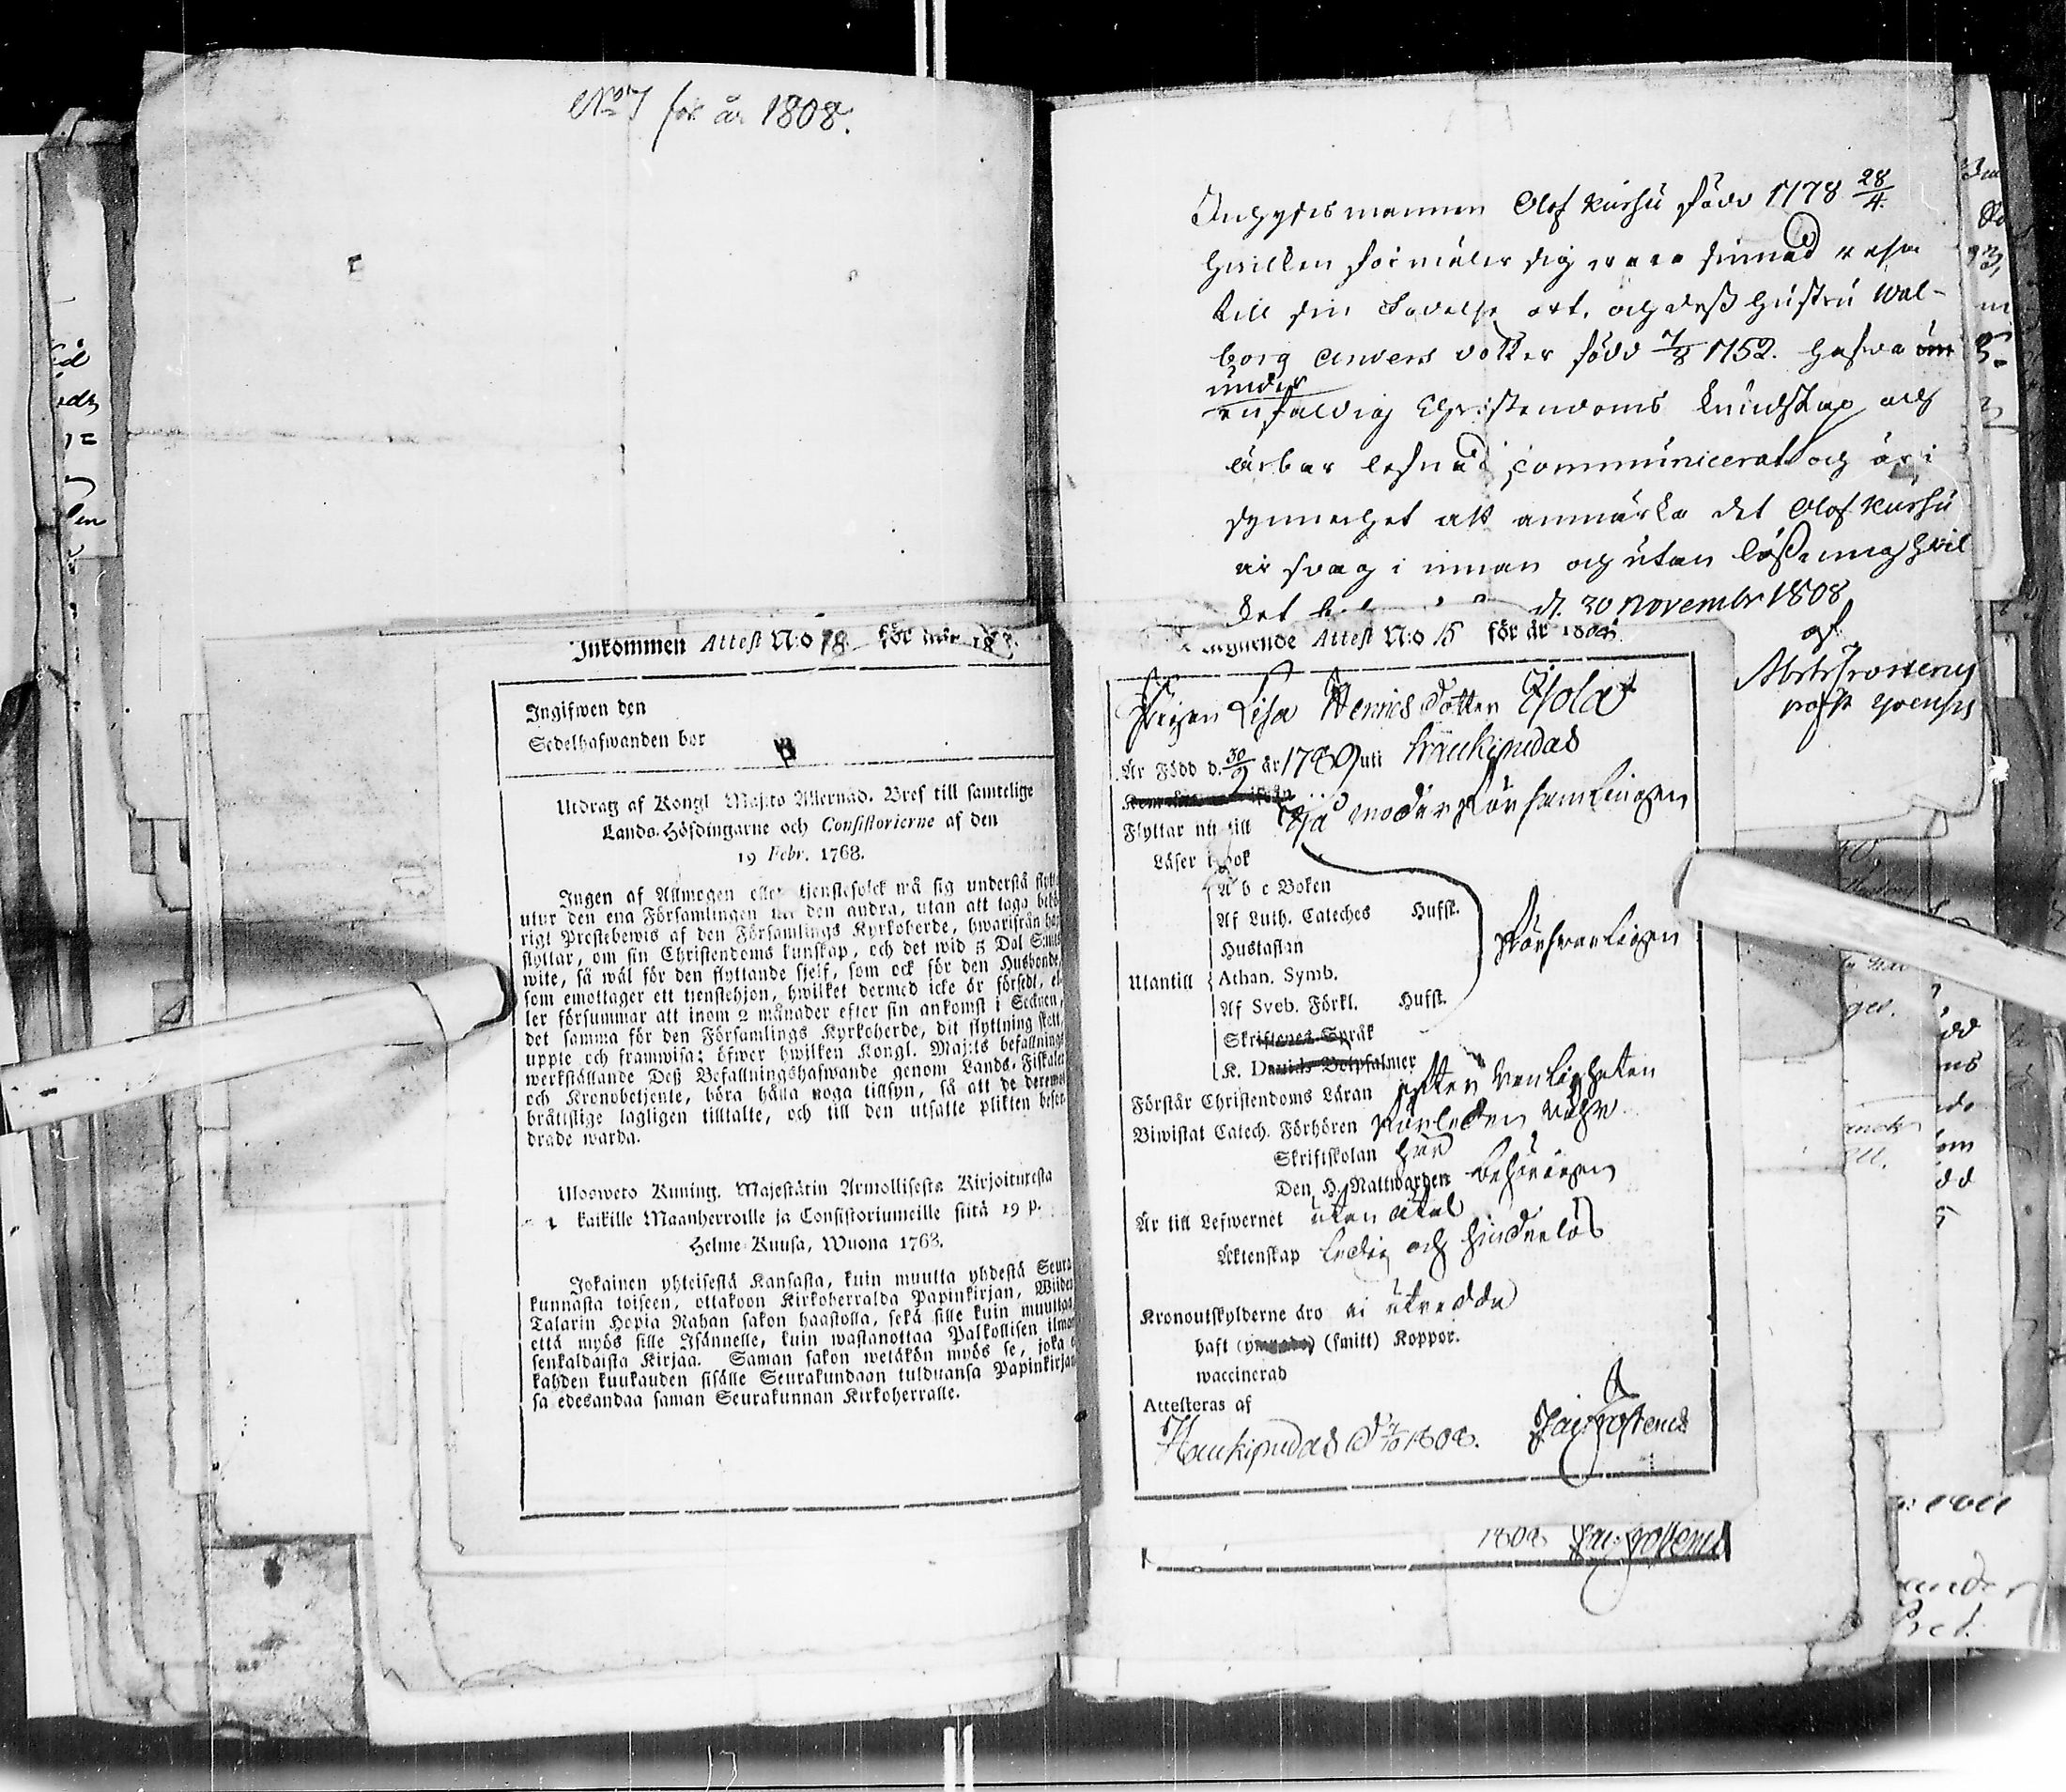 No 7 för år 1808.
Inkommen Attest N:o 18 för
Ingifwen den
Sedelhafwanden bor
Utdrag af Kongl Maj:ts Allernåd. Bref till samtelige
Lands-Höfdingarne och Consistorierne af den
19 Febr. 1768.
Ingen af Allmogen eller tjenstefolck må sig understå flytt
utur den ena Församlingen til den andra, utan att taga behö
rigt Prestebewis af den Församlings Kyrkoherde, hwarifrån han
flyttar, om sin Christendoms kunskap, och det wid 5 Dal S:mts
wite, så wäl för den flyttande sjelf, som ock för den Husbonde,
som emottager ett tienstehjon, hwilket dermed icke är försedt, el-
ler försummar att inom 2 månader efter sin ankomst i Socknen,
det samma för den Församlings Kyrkoherde, dit flyttning skett,
uppte och framwisa; öfwer hwilken Kongl. Maj:ts befallnings
werkställande Deß Befallningshafwande genom Lands-Fiskaler
och Kronobetjente, böra hålla noga tillsyn, så att de deremot
bråttslige lagligen tilltalte, och till den utsatte plikten befor-
drade warda.
Ulosweto Kuning. Majestätin Armollisesta Kirjoituxesta
kaikille Maanherroille ja Consistoriumeille siitä 19 p.
Helme-Kuusa, Wuona 1768.
Jokainen yhteisestä Kansasta, kuin muutta yhdestä Seura
kunnasta toiseen, ottakoon Kirkoherralda Papinkirjan, Wiiden
Talarin Hopia Rahan sakon haastolla, sekä sille kuin muuttaa,
että myös sille Isännelle, kuin wastanottaa Palkollisen ilman
senkaldaista Kirjaa. Saman sakon wetäkön myös se, joka ei
kahden kuukauden sisälle Seurakundaan tulduansa Papinkirjan
sa edesandaa saman Seurakunnan Kirkoherralle.
Inhyses mannen Olof Karhu född 1778 28/4
hvilken förmäler sig vara sinnad resa
till sin Födelse ort, och deß hustru Wal-
borg Anders dotter född 7/8 1752. hafva
under
enfaldig Christendoms kundskap och
ärbar lefnad communicerat och är i
synnerhet att anmärka det Olof Karhu
är svag i innan och utan läßning hvil
ket d. 30 Novembr 1808
af
Attest N:o 15 för år 1808.
Pigan Lisa Henrics dotter Isola
Är Född d. 30/9 år 1789 uti Haukipudas
Flyttar nu till Ijå moder församlingen
Läser i Bok
A b c Boken
Af Luth. Cateches Husst.
Hustaflan
Utantill Athan. Symb.
Af Sveb. Förkl. Husst.
Skriftenes Språk
K. Davids Botpsalmer
försvarligen
Förstår Christendoms Läran efter vanligheten
Biwistat Catech. Förhören
Skriftskolan
Den H. Nattwarden behörigen
Är till Lefwernet utan åtal
Äktenskap ledig och hinderlös
Kronoutskylderne äro ei utredde
haft (smitt) Koppor.
waccinerad
Attesteras af
Haukipudas d 7/10 1808. Jac: Frosterus
1808 Jac: Frosterus